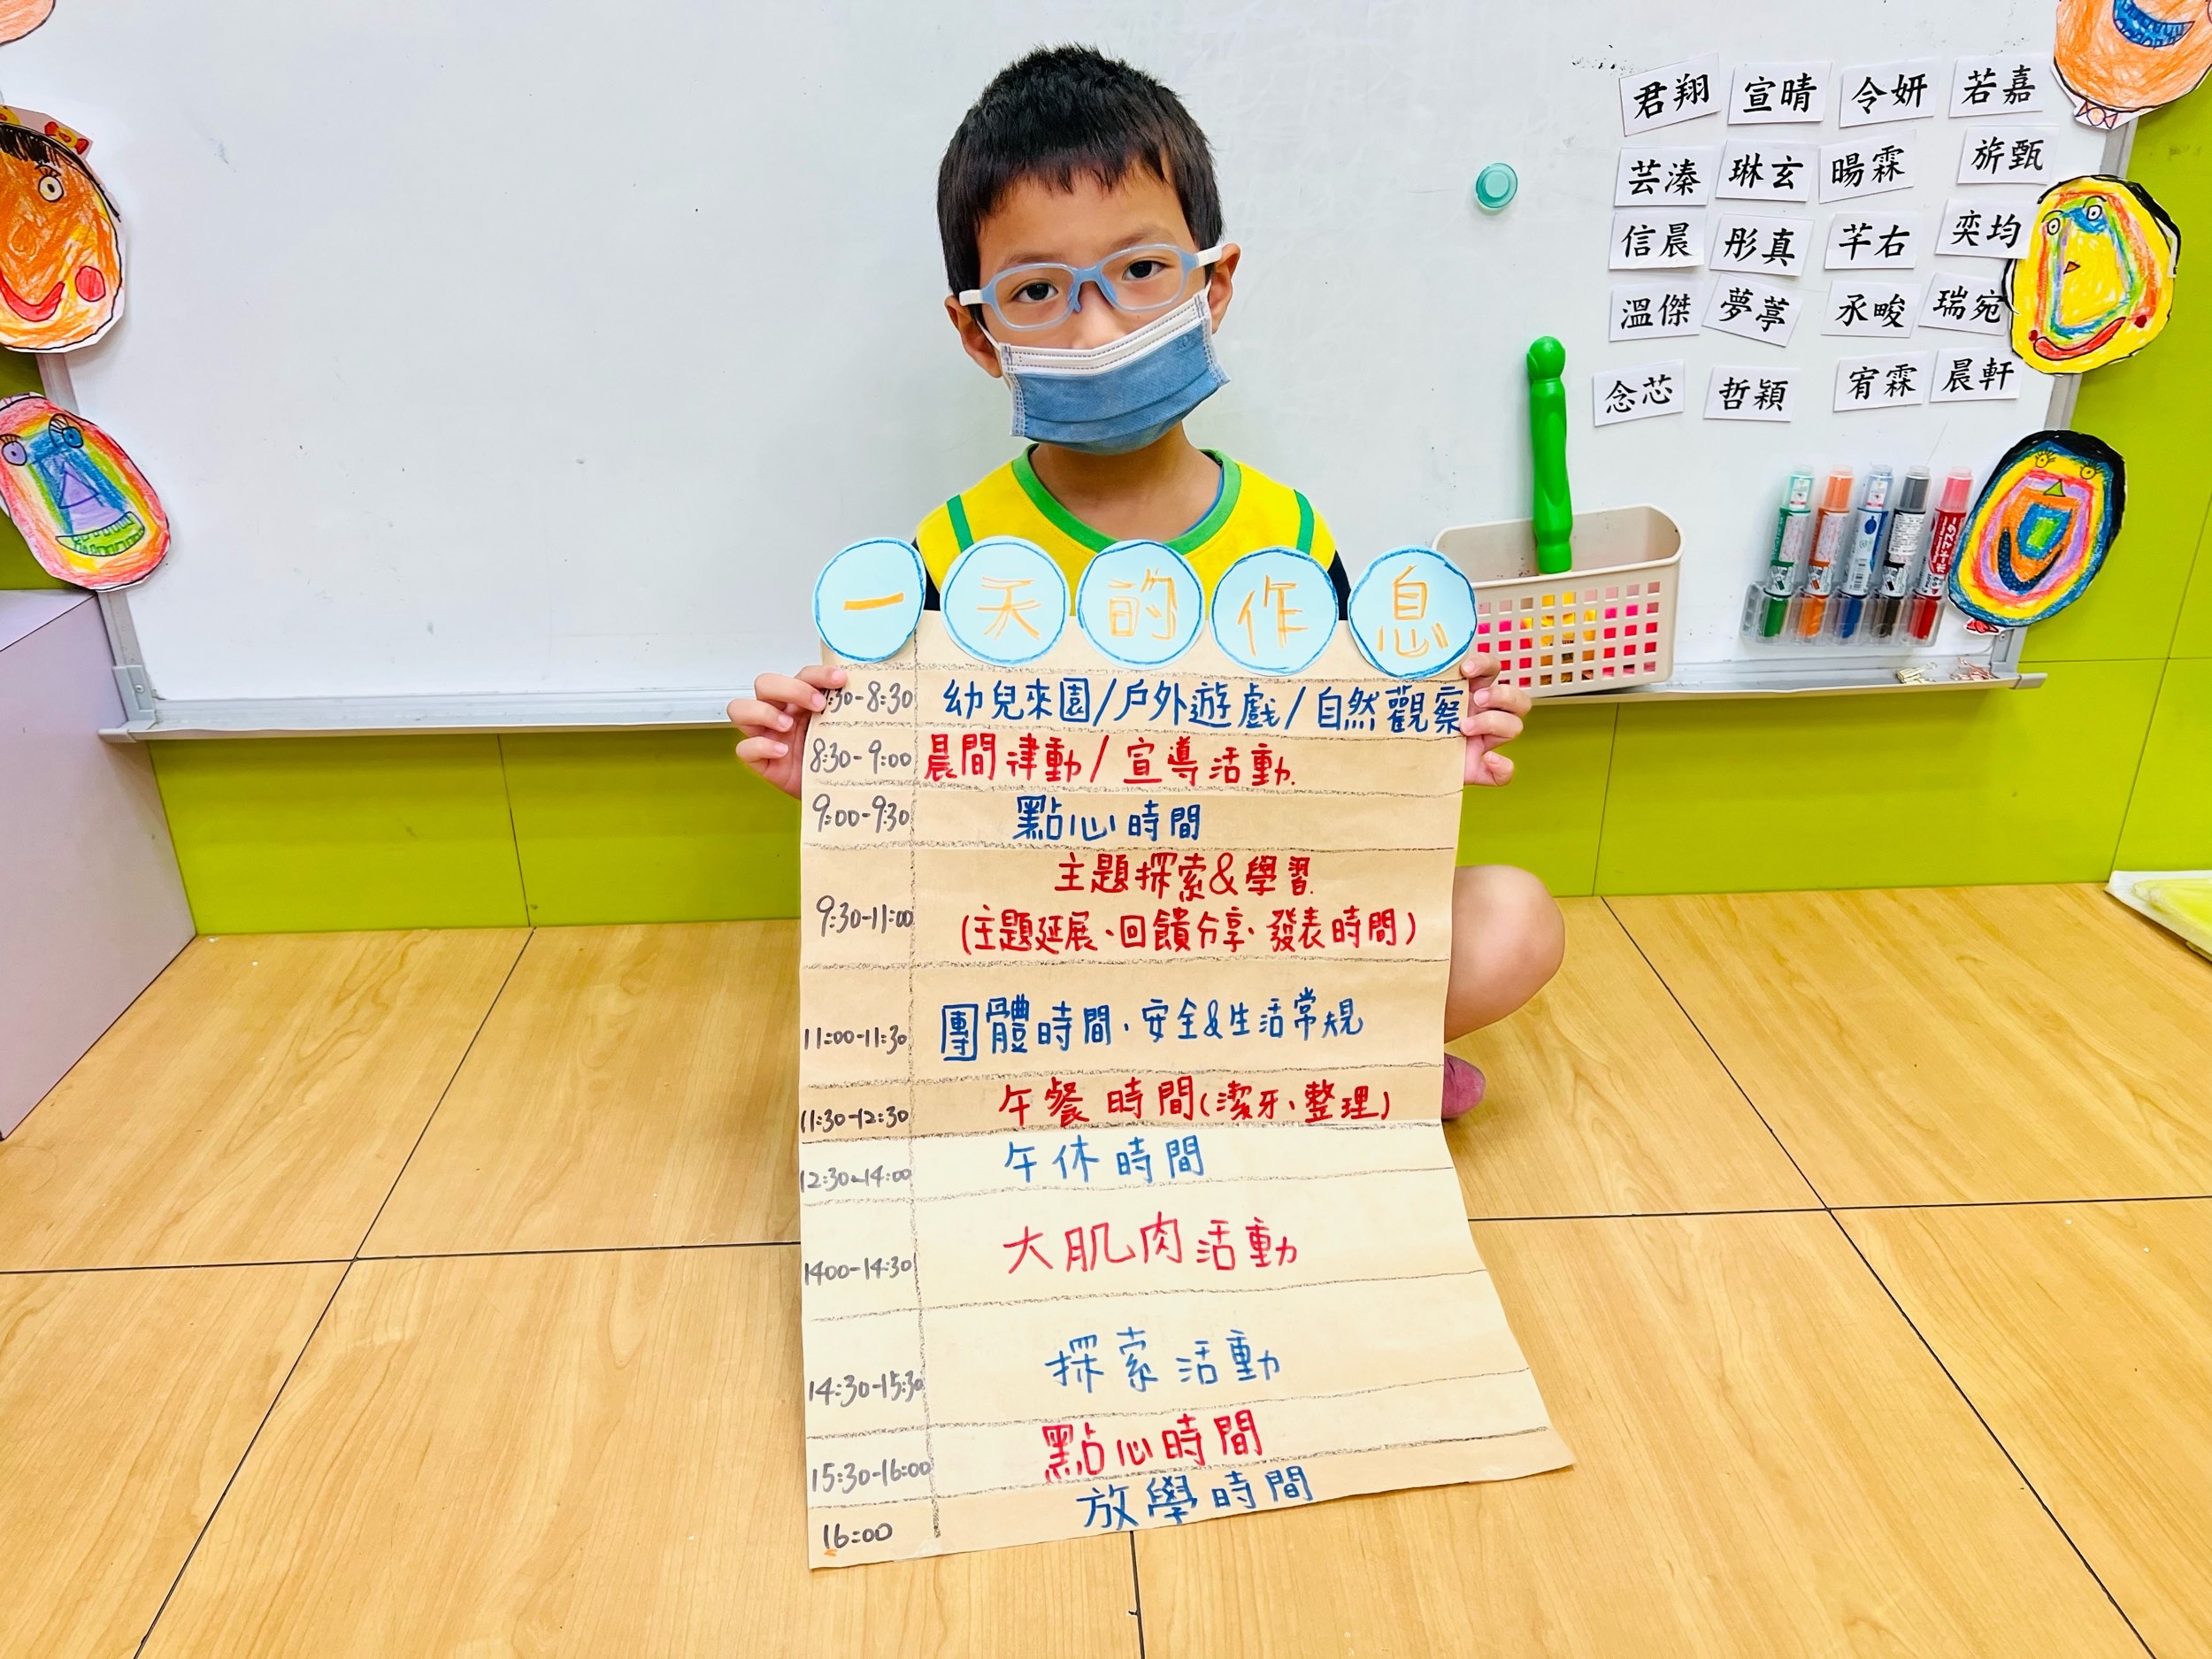 君翔 宣晴 令妍 若嘉
芸溱 琳玄 暘霖 旂甄
信晨 彤真 芊右 奕均
溫傑 夢葶 承畯 瑞宛
念芯 哲穎 宥霖 晨軒
一天的作息
:30-8:30 幼兒來園/戶外遊戲/自然觀察
8:30-9:00 晨間律動/宣導活動.
9:00-9:30 點心時間
主題探索&學習
9:30-11:00 (主題延展、回饋分享、發表時間)
11:00-11:30 團體時間、安全&生活常規
11:30-12:30 午餐時間(潔牙、整理)
12:30-14:00 午休時間
1400-14:30 大肌肉活動
14:30-15:30 探索活動
15:30-16:00 點心時間
16:00 放學時間